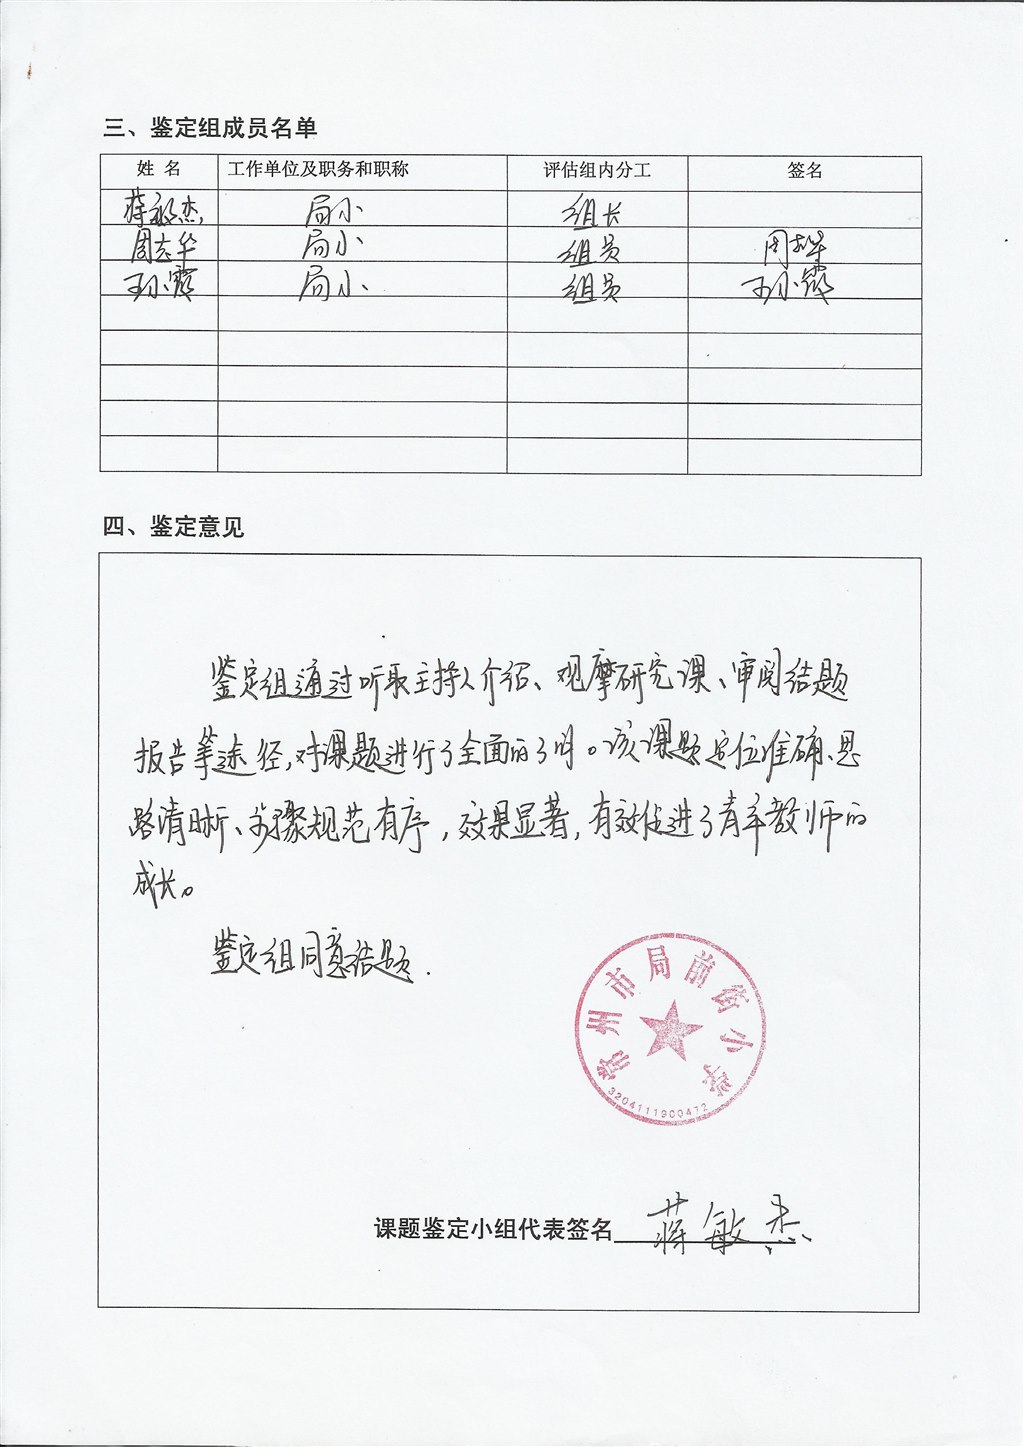 三、鉴定组成员名单
姓 名 工作单位及职务和职称 评估组内分工 签名
蒋敏杰 局小 组长
周志华 局小 组员
王小霞 局小 组员 王小霞
四、鉴定意见
鉴定组通过听取主持人介绍、观摩研究课、审阅结题
报告等途径,对课题进行了全面的了解。该课题定位准确、思
路清晰、步骤规范有序,效果显著,有效促进了青年教师的
成长。
鉴定组同意结题.
常州市局前街小学
3204111900472
课题鉴定小组代表签名 蒋敏杰